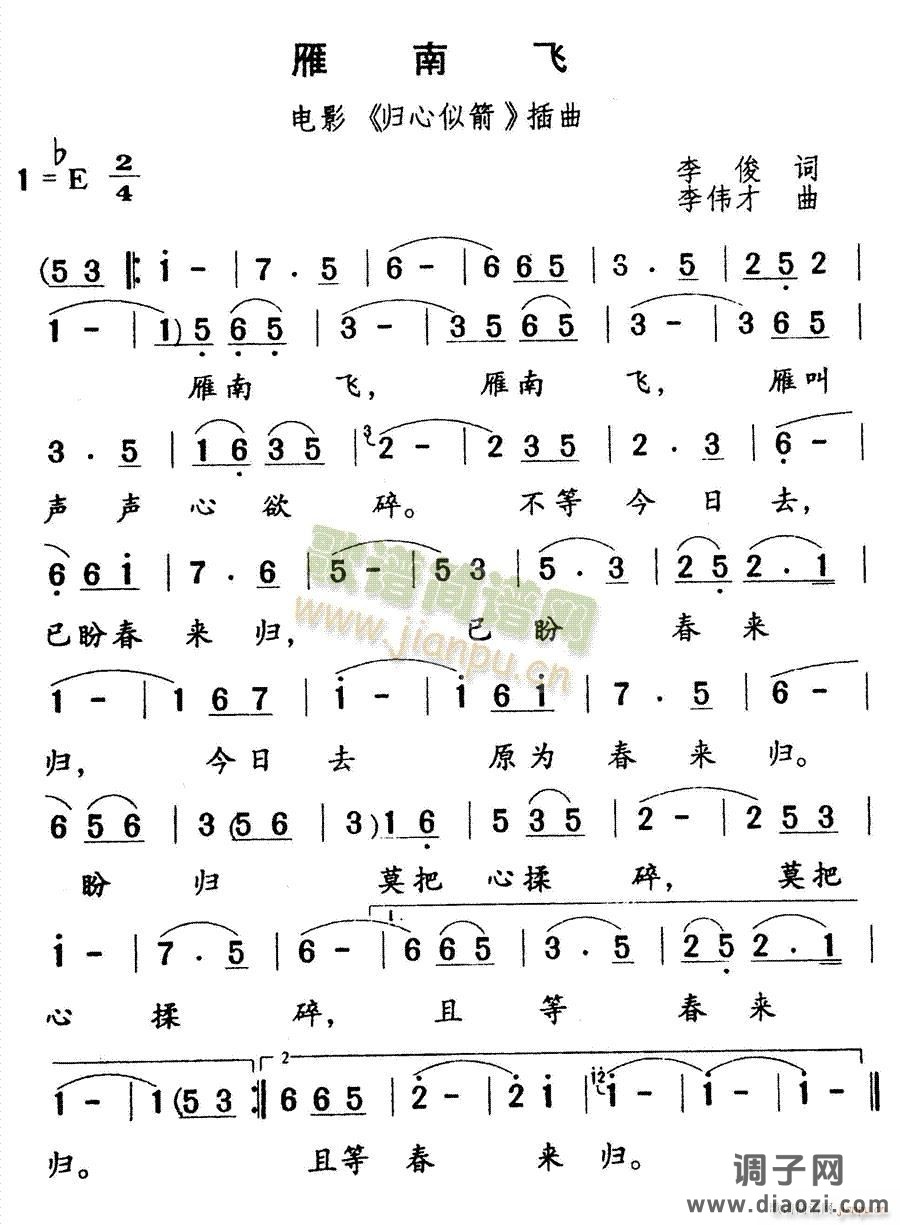 雁南飞
电影《归心似箭》插曲
1=♭E 2/4
李俊 词
李伟才 曲
(53 ‖: i - | 7 . 5 | 6 - | 6 65 | 3 . 5 | 25 2 |
1 - | 1) 5 65 | 3 - | 35 65 | 3 - | 3 65 |
雁南飞, 雁南飞, 雁叫
3 . 5 | 16 35 | 3 2 - | 2 35 | 2 . 3 | 6 - |
声声心欲碎。不等今日去,
6 6i | 7 . 6 | 5 - | 5 53 | 5 . 3 | 25 2 . 1 |
已盼春来归, 已盼春来
1 - | 1 67 | i - | i 6i | 7 . 5 | 6 - |
归, 今日去 原为春来归。
6 56 | 3 (56 | 3) 16 | 5 35 | 2 - | 2 53 |
盼归 莫把心揉碎, 莫把
1.
i - | 7 . 5 | 6 - | 6 65 | 3 . 5 | 25 2 . 1 |
心揉碎, 且等春来
2
1 - | 1 (53 :‖ 6 65 | 2 - | 2 i | i2 i - | i - | i - ‖
归。 且等春来归。
歌谱简谱网
www.jianpu.cn
调子网
www.diaozi.com